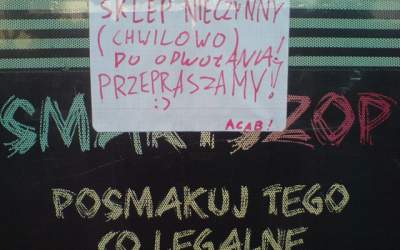 SKLEP NIECZYNNY
(CHWILOWO)!
DO ODWOŁANIA!
PRZEPRASZAMY!
:)
ACAB!
SMART SZOP
POSMAKUJ TEGO
CO LEGALNE